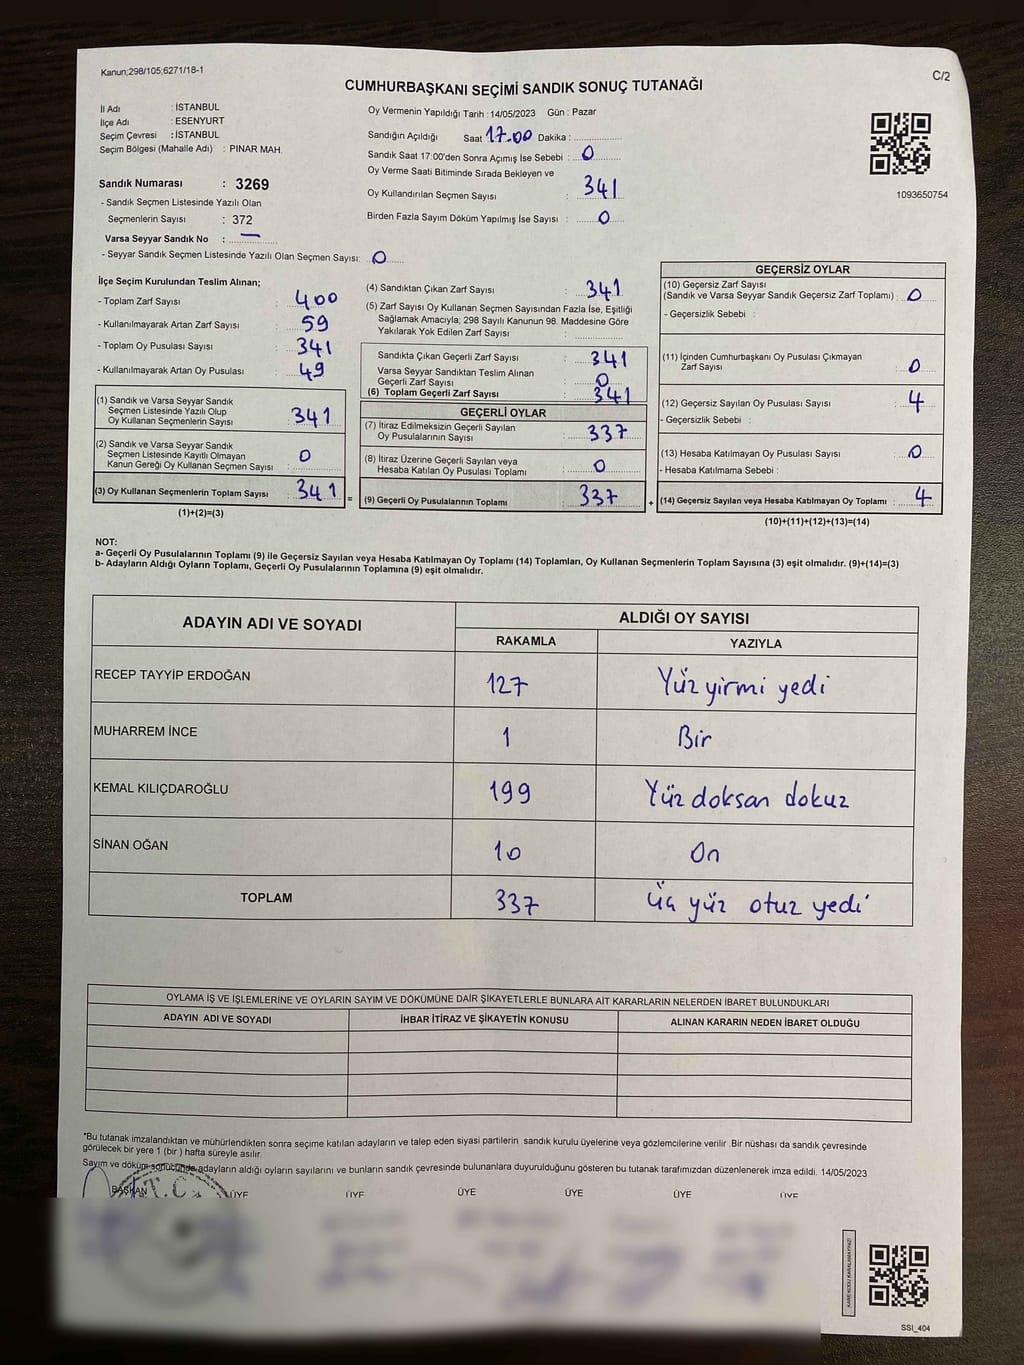 Kanun;298/105;6271/18-1
C/2
CUMHURBAŞKANI SEÇİMİ SANDIK SONUÇ TUTANAĞI
İl Adı : İSTANBUL
İlçe Adı : ESENYURT
Seçim Çevresi : İSTANBUL
Seçim Bölgesi (Mahalle Adı) : PINAR MAH.
Sandık Numarası : 3269
- Sandık Seçmen Listesinde Yazılı Olan
Seçmenlerin Sayısı : 372
Varsa Seyyar Sandık No : —
- Seyyar Sandık Seçmen Listesinde Yazılı Olan Seçmen Sayısı: 0
Oy Vermenin Yapıldığı Tarih : 14/05/2023 Gün : Pazar
Sandığın Açıldığı Saat 17.00 Dakika :
Sandık Saat 17:00'den Sonra Açımış İse Sebebi : 0
Oy Verme Saati Bitiminde Sırada Bekleyen ve
Oy Kullandırılan Seçmen Sayısı : 341
Birden Fazla Sayım Döküm Yapılmış İse Sayısı : 0
1093650754
İlçe Seçim Kurulundan Teslim Alınan;
- Toplam Zarf Sayısı : 400
- Kullanılmayarak Artan Zarf Sayısı : 59
- Toplam Oy Pusulası Sayısı : 341
- Kullanılmayarak Artan Oy Pusulası : 49
(1) Sandık ve Varsa Seyyar Sandık
Seçmen Listesinde Yazılı Olup
Oy Kullanan Seçmenlerin Sayısı : 341
(2) Sandık ve Varsa Seyyar Sandık
Seçmen Listesinde Kayıtlı Olmayan
Kanun Gereği Oy Kullanan Seçmen Sayısı : 0
(3) Oy Kullanan Seçmenlerin Toplam Sayısı : 341 =
(1)+(2)=(3)
(4) Sandıktan Çıkan Zarf Sayısı : 341
(5) Zarf Sayısı Oy Kullanan Seçmen Sayısından Fazla İse, Eşitliği
Sağlamak Amacıyla; 298 Sayılı Kanunun 98. Maddesine Göre
Yakılarak Yok Edilen Zarf Sayısı :
Sandıkta Çıkan Geçerli Zarf Sayısı : 341
Varsa Seyyar Sandıktan Teslim Alınan
Geçerli Zarf Sayısı : 0
(6) Toplam Geçerli Zarf Sayısı : 341
GEÇERLİ OYLAR
(7) İtiraz Edilmeksizin Geçerli Sayılan
Oy Pusulalarının Sayısı : 337
(8) İtiraz Üzerine Geçerli Sayılan veya
Hesaba Katılan Oy Pusulası Toplamı : 0
(9) Geçerli Oy Pusulalarının Toplamı : 337 +
GEÇERSİZ OYLAR
(10) Geçersiz Zarf Sayısı
(Sandık ve Varsa Seyyar Sandık Geçersiz Zarf Toplamı) : 0
- Geçersizlik Sebebi :
(11) İçinden Cumhurbaşkanı Oy Pusulası Çıkmayan
Zarf Sayısı : 0
(12) Geçersiz Sayılan Oy Pusulası Sayısı : 4
- Geçersizlik Sebebi :
(13) Hesaba Katılmayan Oy Pusulası Sayısı : 0
- Hesaba Katılmama Sebebi :
(14) Geçersiz Sayılan veya Hesaba Katılmayan Oy Toplamı : 4
(10)+(11)+(12)+(13)=(14)
NOT:
a- Geçerli Oy Pusulalarının Toplamı (9) ile Geçersiz Sayılan veya Hesaba Katılmayan Oy Toplamı (14) Toplamları, Oy Kullanan Seçmenlerin Toplam Sayısına (3) eşit olmalıdır. (9)+(14)=(3)
b- Adayların Aldığı Oyların Toplamı, Geçerli Oy Pusulalarının Toplamına (9) eşit olmalıdır.
ADAYIN ADI VE SOYADI
ALDIĞI OY SAYISI
RAKAMLA YAZIYLA
RECEP TAYYİP ERDOĞAN 127 Yüz yirmi yedi
MUHARREM İNCE 1 Bir
KEMAL KILIÇDAROĞLU 199 Yüz doksan dokuz
SİNAN OĞAN 10 On
TOPLAM 337 Üç yüz otuz yedi
OYLAMA İŞ VE İŞLEMLERİNE VE OYLARIN SAYIM VE DÖKÜMÜNE DAİR ŞİKAYETLERLE BUNLARA AİT KARARLARIN NELERDEN İBARET BULUNDUKLARI
ADAYIN ADI VE SOYADI İHBAR İTİRAZ VE ŞİKAYETİN KONUSU ALINAN KARARIN NEDEN İBARET OLDUĞU
*Bu tutanak imzalandıktan ve mühürlendikten sonra seçime katılan adayların ve talep eden siyasi partilerin sandık kurulu üyelerine veya gözlemcilerine verilir .Bir nüshası da sandık çevresinde
görülecek bir yere 1 (bir ) hafta süreyle asılır.
Sayım ve döküm sonucunda adayların aldığı oyların sayılarını ve bunların sandık çevresinde bulunanlara duyurulduğunu gösteren bu tutanak tarafımızdan düzenlenerek imza edildi. 14/05/2023
BAŞKAN ÜYE ÜYE ÜYE ÜYE ÜYE ÜYE
T.C.
KARE KODU KARALAMAYINIZ!
SSI_404